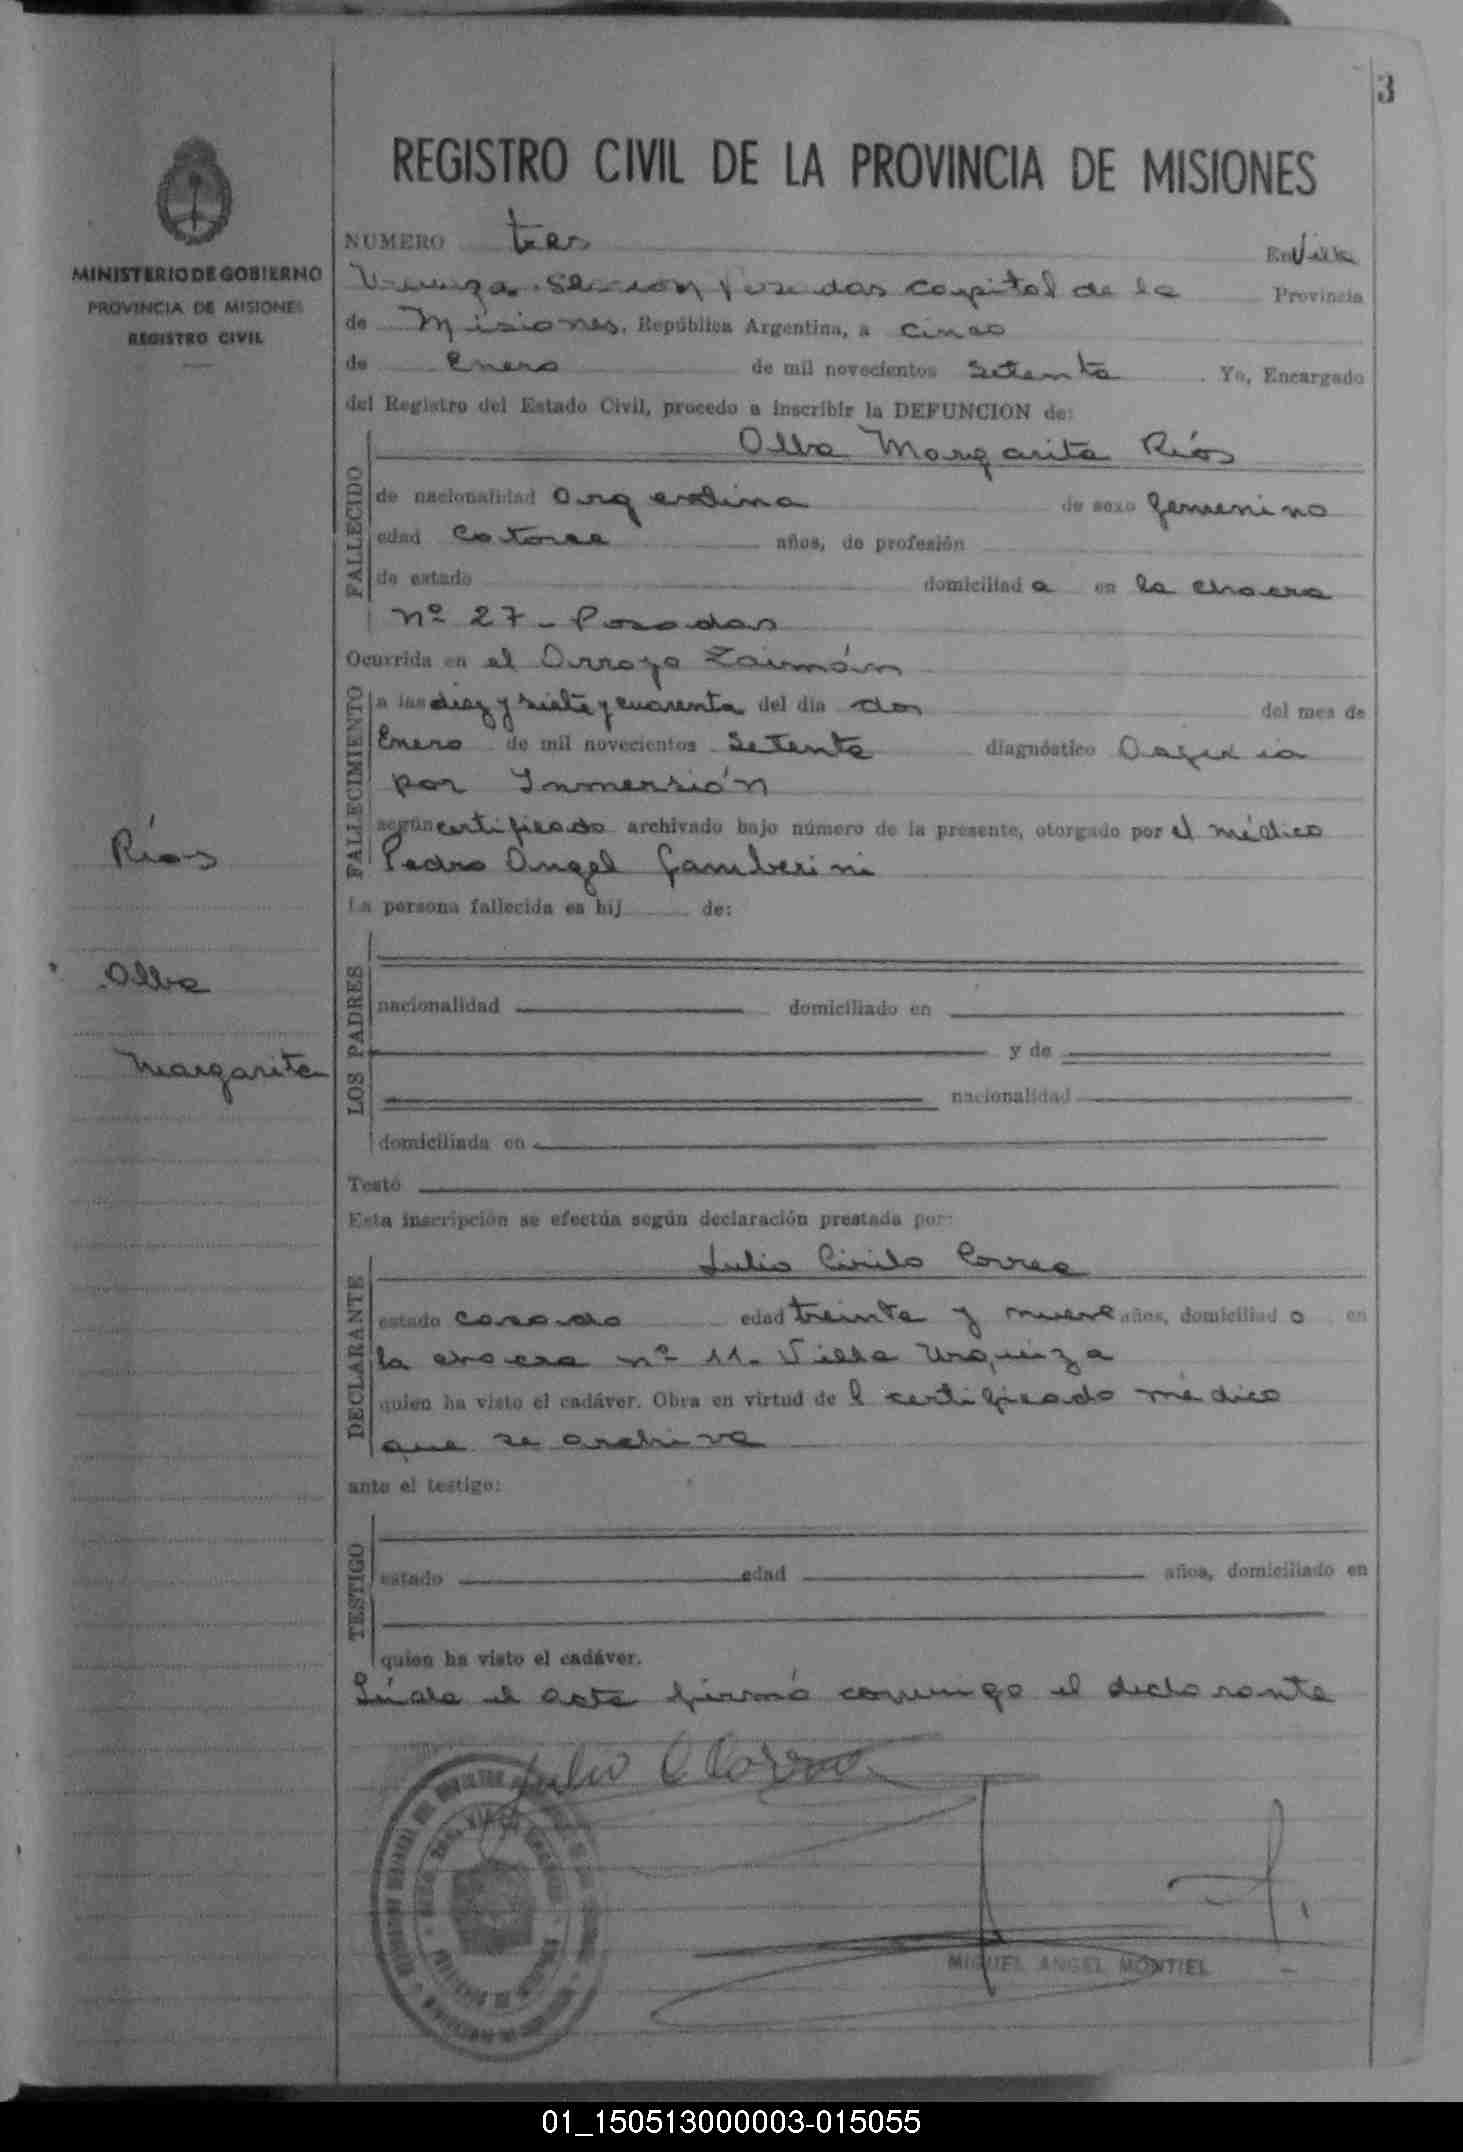 3
REGISTRO CIVIL DE LA PROVINCIA DE MISIONES
MINISTERIO DE GOBIERNO
PROVINCIA DE MISIONES
REGISTRO CIVIL
NUMERO tres En Villa
Urquiza Sección Posadas capital de la Provincia
de Misiones, República Argentina, a cinco
de Enero de mil novecientos setenta Yo, Encargado
del Registro del Estado Civil, procedo a inscribir la DEFUNCION de:
FALLECIDO
Alba Margarita Ríos
de nacionalidad Argentina de sexo femenino
edad catorce años, de profesión
de estado domiciliad a en la chacra
nº 27 - Posadas
Ocurrida en el Arroyo Zaimán
FALLECIMIENTO
a las diez y siete y cuarenta del día dos del mes de
Enero de mil novecientos Setenta diagnóstico Asfixia
por Inmersión
según certificado archivado bajo número de la presente, otorgado por el médico
Pedro Angel Gamberini
La persona fallecida es hij de:
Ríos
Alba
Margarita
LOS PADRES
nacionalidad domiciliado en
y de
nacionalidad
domiciliada en
Testó
Esta inscripción se efectúa según declaración prestada por:
DECLARANTE
Julio Cirilo Correa
estado casado edad treinta y nueve años, domiciliad o en
la chacra nº 11. Villa Urquiza
quien ha visto el cadáver. Obra en virtud de l certificado médico
que se archiva
ante el testigo:
TESTIGO
estado edad años, domiciliado en
quien ha visto el cadáver.
Leída el acta firmó conmigo el declarante
Julio C Correa
MIGUEL ANGEL MONTIEL
01_150513000003-015055